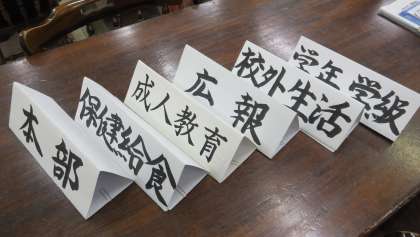 本部
保健給食
成人教育
広報
校外生活
学年学級